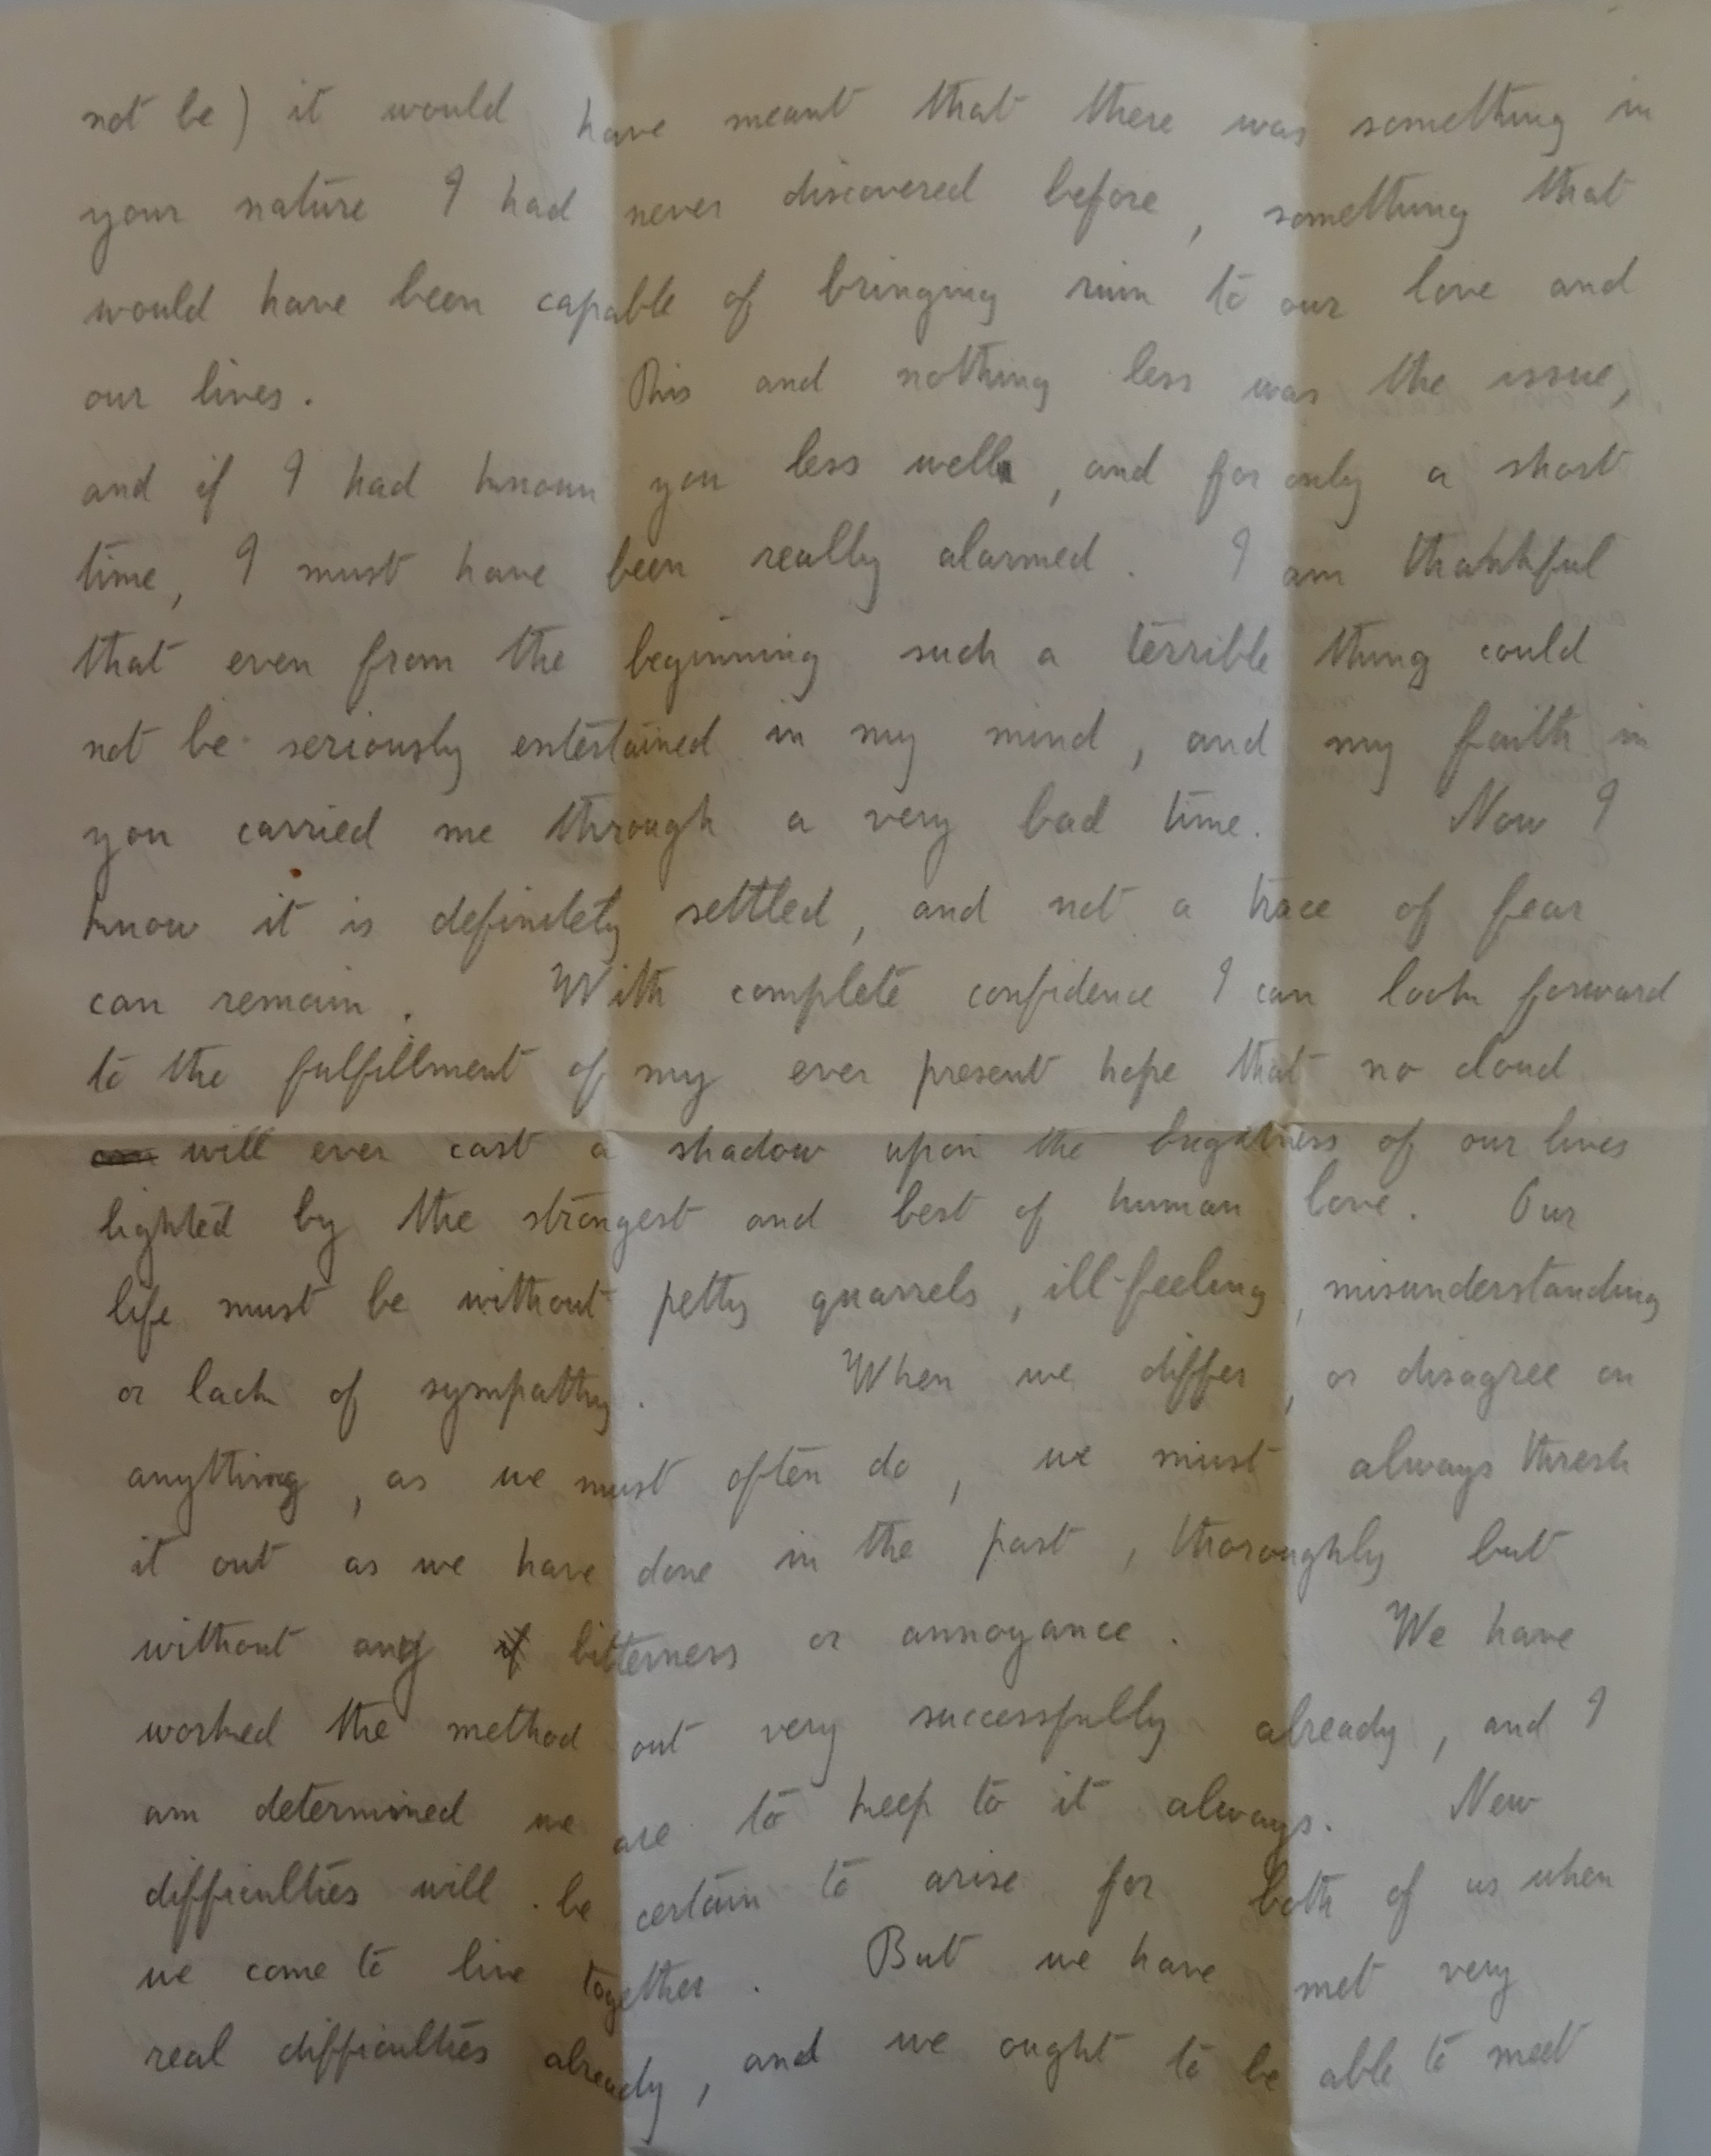 not be) it would have meant that there was something in
your nature I had never discovered before, something that
would have been capable of bringing ruin to our love and
our lives. This and nothing less was the issue,
and if I had known you less well, and for only a short
time, I must have been really alarmed. I am thankful
that even from the beginning such a terrible thing could
not be seriously entertained in my mind, and my faith in
you carried me through a very bad time. Now I
know it is definitely settled, and not a trace of fear
can remain. With complete confidence I can look forward
to the fulfillment of my ever present hope that no cloud
will ever cast a shadow upon the brightness of our lives
lighted by the strongest and best of human love. Our
life must be without petty quarrels, ill-feeling, misunderstanding
or lack of sympathy. When we differ, or disagree on
anything, as we must often do, we must always thresh
it out as we have done in the past, thoroughly but
without any bitterness or annoyance. We have
worked the method out very successfully already, and I
am determined we are to keep to it always. New
difficulties will be certain to arise for both of us when
we come to live together. But we have met very
real difficulties already, and we ought to be able to meet